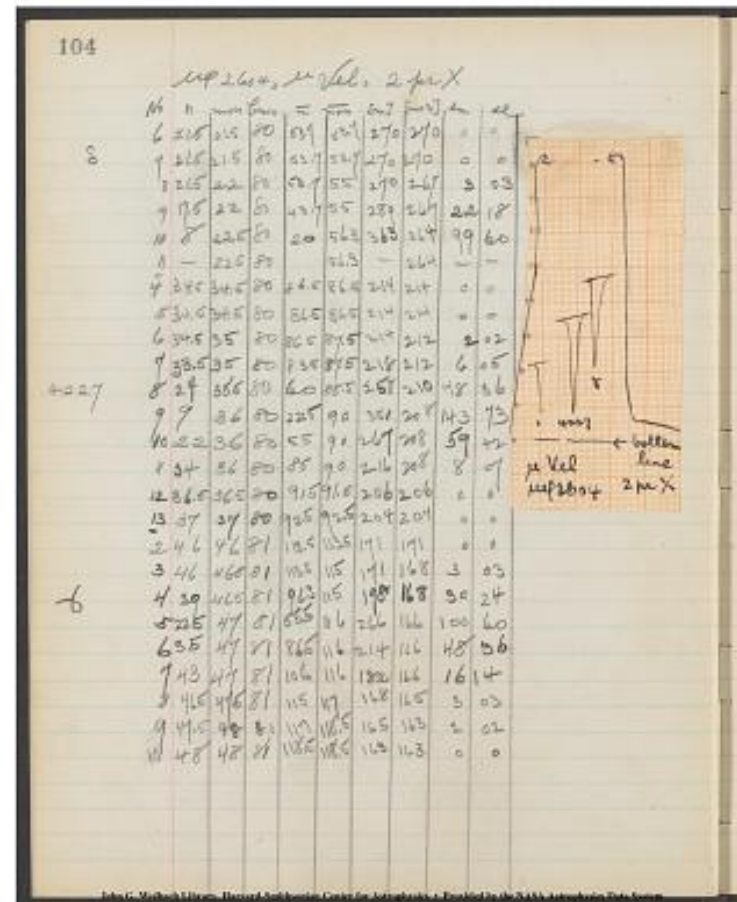 104
μφ2604, μ Vel. 2 pr X
No n
6 21.5 21.5 80 53.7 53.7 270 270 0 0
δ 7 21.5 21.5 80 53.7 53.7 270 270 0 0
8 21.5 22 80 53.7 55 270 267 3 03
9 17.5 22 80 43.7 55 289 267 22 18
10 8 22.5 80 20 56.3 363 264 99 60
11 — 22.5 80 56.3 — 264 — —
4 34.5 34.5 80 86.5 86.5 214 214 0 0
5 34.5 34.5 80 86.5 86.5 214 214 0 0
6 34.5 35 80 86.5 87.5 214 212 2 02
7 33.5 35 80 83.5 87.5 218 212 6 05
4227 8 24 35.5 80 60 88.5 258 210 48 36
9 9 36 80 22.5 90 351 208 143 73
10 22 36 80 55 90 267 208 59 42
11 34 36 80 85 90 216 208 8 07
12 36.5 36.5 80 91.5 91.5 206 206 0 0
13 37 37 80 92.5 92.5 204 204 0 0
2 46 46 81 113.5 113.5 171 171 0 0
3 46 46.5 81 113.5 115 171 168 3 03
4 39 46.5 81 96.3 115 198 168 30 24
5 22.5 47 81 55.5 116 266 166 100 60
6 35 47 81 86.5 116 214 166 48 36
7 43 47 81 106 116 182 166 16 14
8 46.5 47.5 81 115 117 168 165 3 03
9 47.5 48 81 117 118.5 165 163 2 02
10 48 48 81 118.5 118.5 163 163 0 0
γ
← bottom line
μ Vel
μφ2604 2 pr X
John G. Wolbach Library, Harvard-Smithsonian Center for Astrophysics • Provided by the NASA Astrophysics Data System